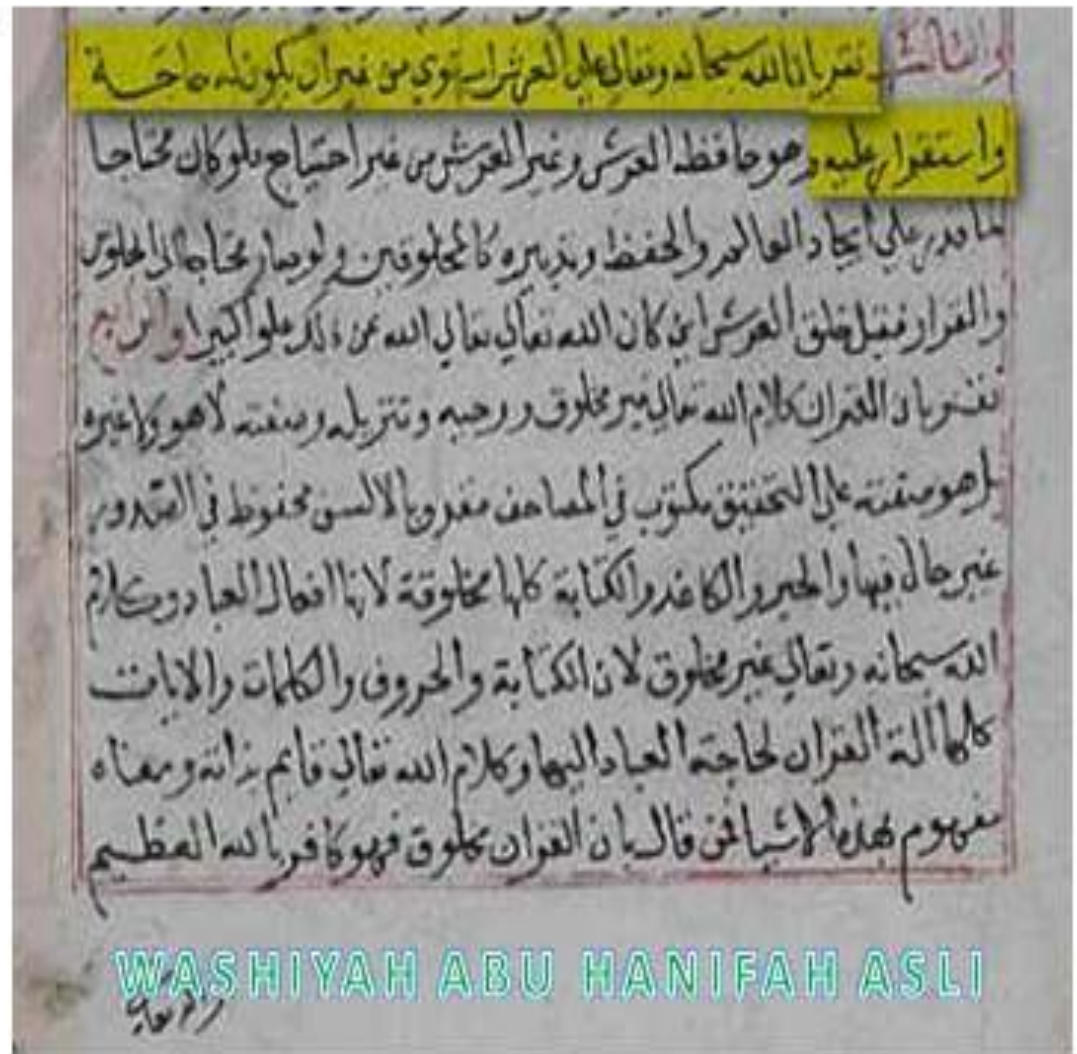 والثالث نقر بان الله سبحانه وتعالى على العرش استوي من غير ان يكون له حاجة
واستقرار عليه وهو حافظ العرش وغير العرش من غير احتياج فلو كان محتاجا
لما قدر على ايجاد العالم والحفظ وتدبيره كالمخلوقين ولو صار محتاجا الى الجلوس
والقرار فقبل خلق العرش اين كان الله تعالى تعالي الله عن ذلك علوا كبيرا والرابع
نقر بان القران كلام الله تعالي غير مخلوق ووحيه وتنزيله وصفته لا هو ولا غيره
بل هو صفته على التحقيق مكتوب في المصاحف مقرو بالالسن محفوظ في الصدور
غير حال فيها والحبر والكاغد والكتابة كلها مخلوقة لانها افعال العباد وكلام
الله سبحانه وتعالي غير مخلوق لان الكتابة والحروف والكلمات والايات
كلها الة القران لحاجة العباد اليها وكلام الله تعالي قايم بذاته ومعناه
مفهوم بهذه الاشيا فمن قال بان القران مخلوق فهو كافر بالله العظيم
WASHIYAH ABU HANIFAH ASLI